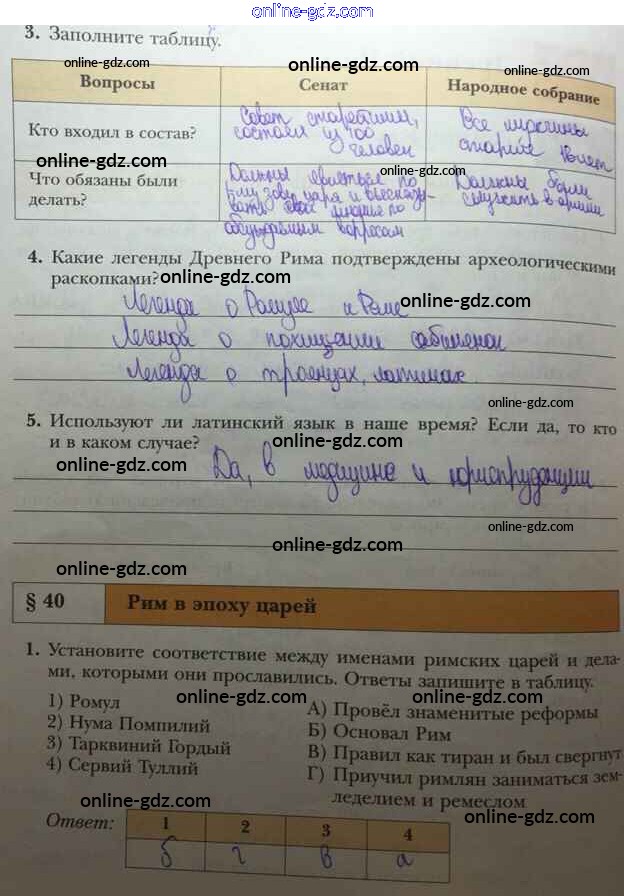 online-gdz.com
3. Заполните таблицу.
online-gdz.com online-gdz.com online-gdz.com
Вопросы Сенат Народное собрание
Кто входил в состав? Совет старейшин, состоял из 100 человек Все мужчины старше лет
online-gdz.com online-gdz.com
Что обязаны были делать? Должны являться по зову царя и высказывать свое мнение по обсуждаемым вопросам Должны были служить в армии
4. Какие легенды Древнего Рима подтверждены археологическими
раскопками? online-gdz.com
Легенда о Ромуле и Реме online-gdz.com
Легенда о похищении сабинянок
Легенда о троянцах, латинах
online-gdz.com
5. Используют ли латинский язык в наше время? Если да, то кто
и в каком случае? online-gdz.com
online-gdz.com Да, в медицине и юриспруденции
online-gdz.com
online-gdz.com
online-gdz.com
§ 40 Рим в эпоху царей
1. Установите соответствие между именами римских царей и дела-
ми, которыми они прославились. Ответы запишите в таблицу.
1) Ромул online-gdz.com А) Провёл знаменитые реформы
2) Нума Помпилий Б) Основал Рим
3) Тарквиний Гордый В) Правил как тиран и был свергнут
4) Сервий Туллий Г) Приучил римлян заниматься зем-
online-gdz.com леделием и ремеслом
Ответ: 1 2 3 4 online-gdz.com
б г в а